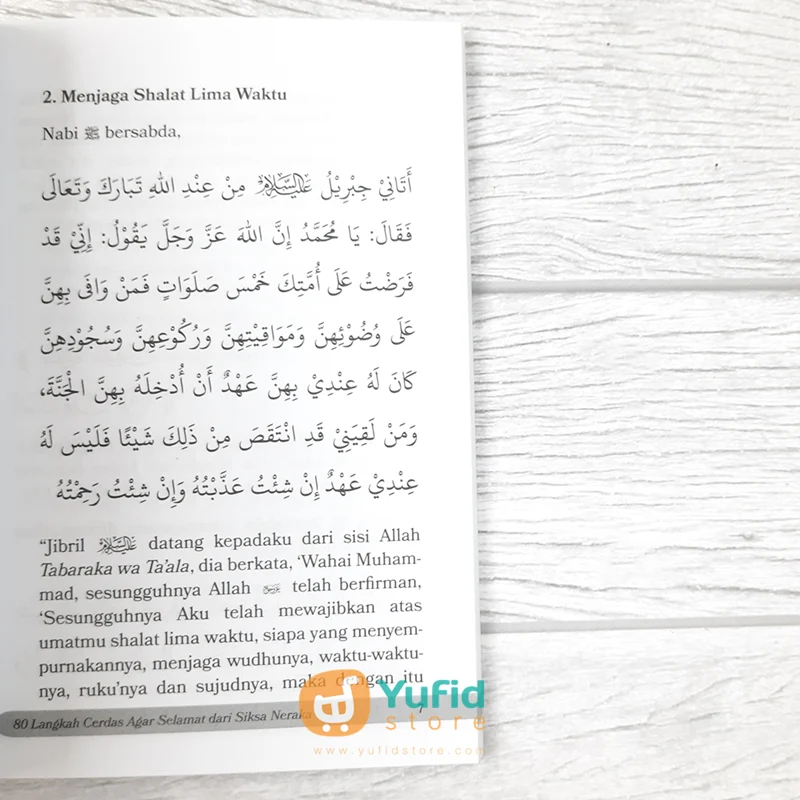 2. Menjaga Shalat Lima Waktu
Nabi ﷺ bersabda,
أَتَانِيْ جِبْرِيْلُ عَلَيْهِ السَّلَامُ مِنْ عِنْدِ اللهِ تَبَارَكَ وَتَعَالَى
فَقَالَ: يَا مُحَمَّدُ إِنَّ اللهَ عَزَّ وَجَلَّ يَقُوْلُ: إِنِّيْ قَدْ
فَرَضْتُ عَلَى أُمَّتِكَ خَمْسَ صَلَوَاتٍ فَمَنْ وَافَى بِهِنَّ
عَلَى وُضُوْئِهِنَّ وَمَوَاقِيْتِهِنَّ وَرُكُوْعِهِنَّ وَسُجُوْدِهِنَّ
كَانَ لَهُ عِنْدِيْ بِهِنَّ عَهْدٌ أَنْ أُدْخِلَهُ بِهِنَّ الْجَنَّةَ،
وَمَنْ لَقِيَنِيْ قَدِ انْتَقَصَ مِنْ ذَلِكَ شَيْئًا فَلَيْسَ لَهُ
عِنْدِيْ عَهْدٌ إِنْ شِئْتُ عَذَّبْتُهُ وَإِنْ شِئْتُ رَحِمْتُهُ
"Jibril عَلَيْهِ السَّلَامُ datang kepadaku dari sisi Allah
Tabaraka wa Ta'ala, dia berkata, 'Wahai Muham-
mad, sesungguhnya Allah telah berfirman,
'Sesungguhnya Aku telah mewajibkan atas
umatmu shalat lima waktu, siapa yang menyem-
purnakannya, menjaga wudhunya, waktu-waktu-
nya, ruku'nya dan sujudnya, maka dengan itu
80 Langkah Cerdas Agar Selamat dari Siksa Neraka
Yufid
store
www.yufidstore.com